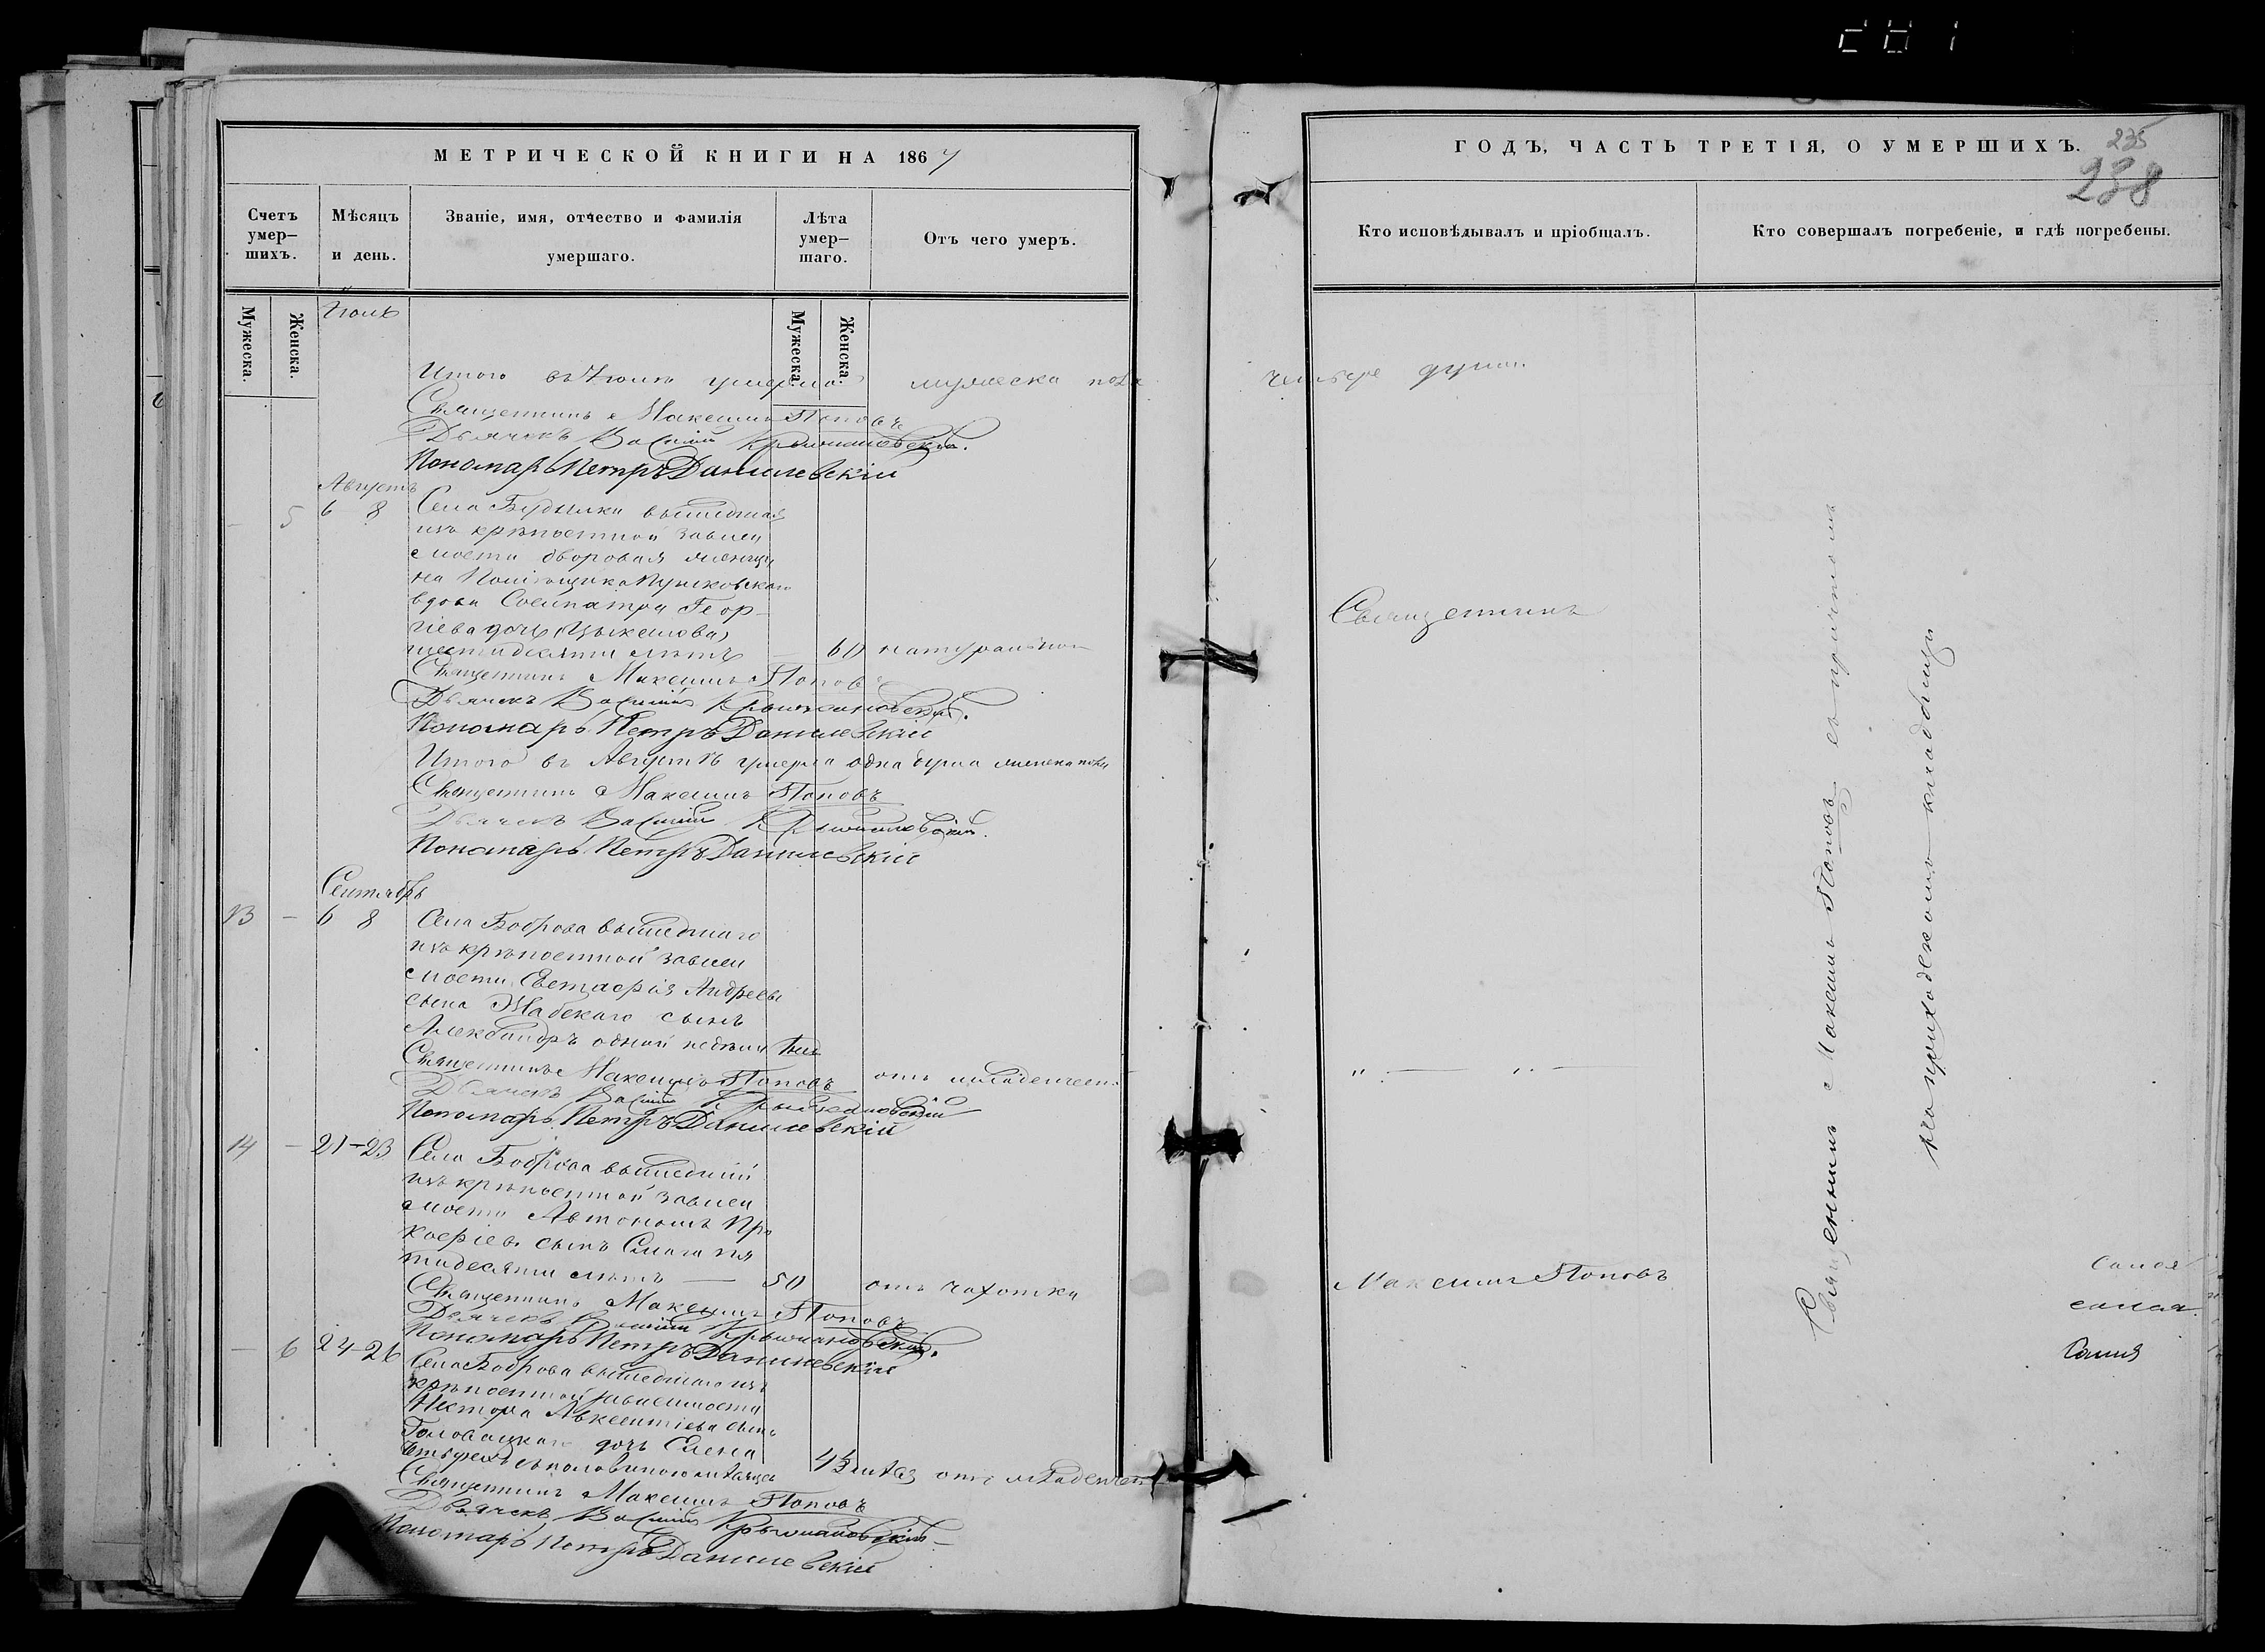 МЕТРИЧЕСКОЙ КНИГИ НА 1867
Счетъ умер-шихъ.
Мѣсяцъ и день.
Званіе, имя, отчество и фамилія умершаго.
Лѣта умер-шаго.
Отъ чего умеръ.
Мужеска.
Женска.
Мужеска.
Женска.
Итого въ Іюлѣ умерло мужеска пола
Священникъ Максимъ Поповъ
Дьячекъ Василій Крыжановскій.
Пономарь Петръ Данилевскій
Августъ
– 5 6 8 Села Будылки вышедшая
изъ крѣпостной зависи
мости дворовая женщи
на Помѣщика
вдова Сосипатра Геор-
гіева дочь
шестидесяти лѣтъ — 60 натуральною
Священникъ Максимъ Поповъ
Дьячекъ Василій Крыжановскій.
Пономарь Петръ Данилевскій
Итого въ Августѣ умерла одна душа женска пола
Священникъ Максимъ Поповъ
Дьячекъ Василій Крыжановскій.
Пономарь Петръ Данилевскій
Сентябрь
13 – 6 8 Села Боброва вышедшаго
изъ крѣпостной зависи
мости Евстафія Андреева
сына Жабскаго сынъ
Александръ одной недѣли
Священникъ Максимъ Поповъ отъ младенчест.
Дьячекъ Василій Крыжановскій
Пономарь Петръ Данилевскій
14 – 21-23 Села Боброва вышедшій
изъ крѣпостной зависи
мости Автономъ Про
кофіевъ сынъ пя
тидесяти лѣтъ — 50 отъ чахотки
Священникъ Максимъ Поповъ
Дьячекъ Василій Крыжановскій.
Пономарь Петръ Данилевскій
– 6 24-26 Села Боброва вышедшаго изъ
крѣпостной зависимости
Нестора Авксентіева сына
дочь Елена
съ половиною мѣсяца 4½ отъ младенчест
Священникъ Максимъ Поповъ
Дьячекъ Василій Крыжановскій
Пономарь Петръ Данилевскій
ГОДЪ, ЧАСТЬ ТРЕТІЯ, О УМЕРШИХЪ.
235
238
Кто исповѣдывалъ и пріобщалъ.
Кто совершалъ погребеніе, и гдѣ погребены.
четыре души.
Священникъ
" — " —
Максимъ Поповъ
Священникъ Максимъ Поповъ съ причтомъ
на приходскомъ кладбищѣ